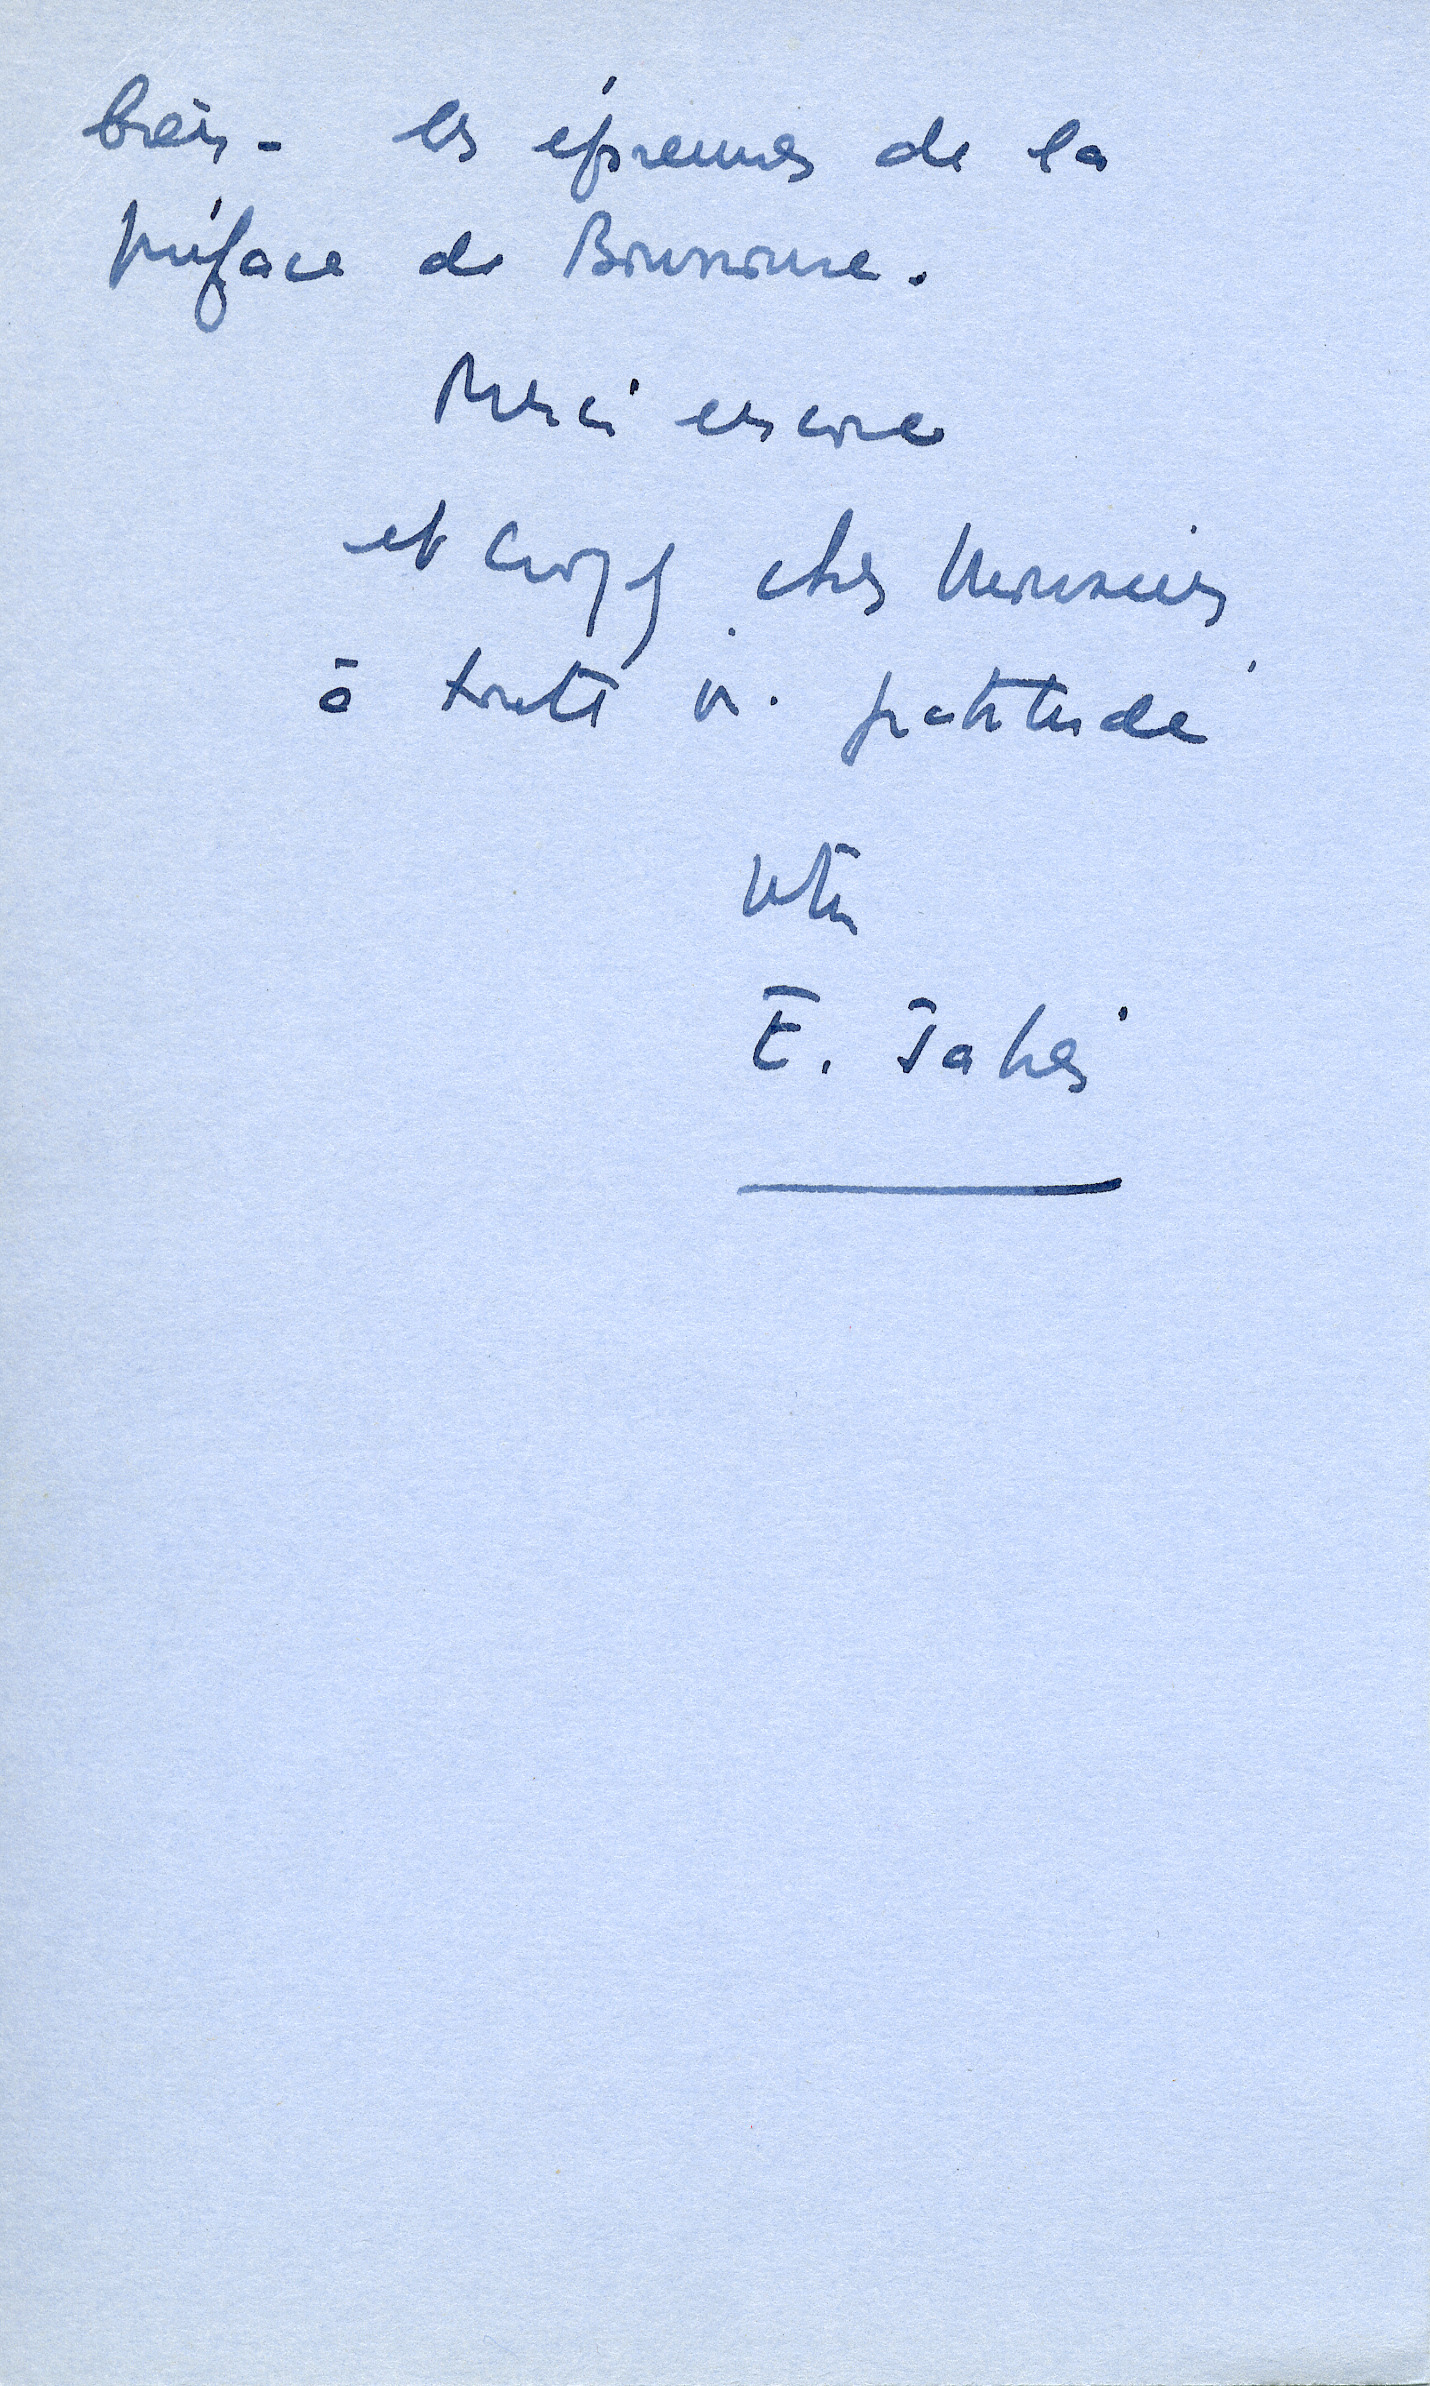 bien - les épreuves de la
préface de Bounoure.
Merci encore
et croyez, cher Monsieur
à toute ma gratitude
Votre
E. Jabès